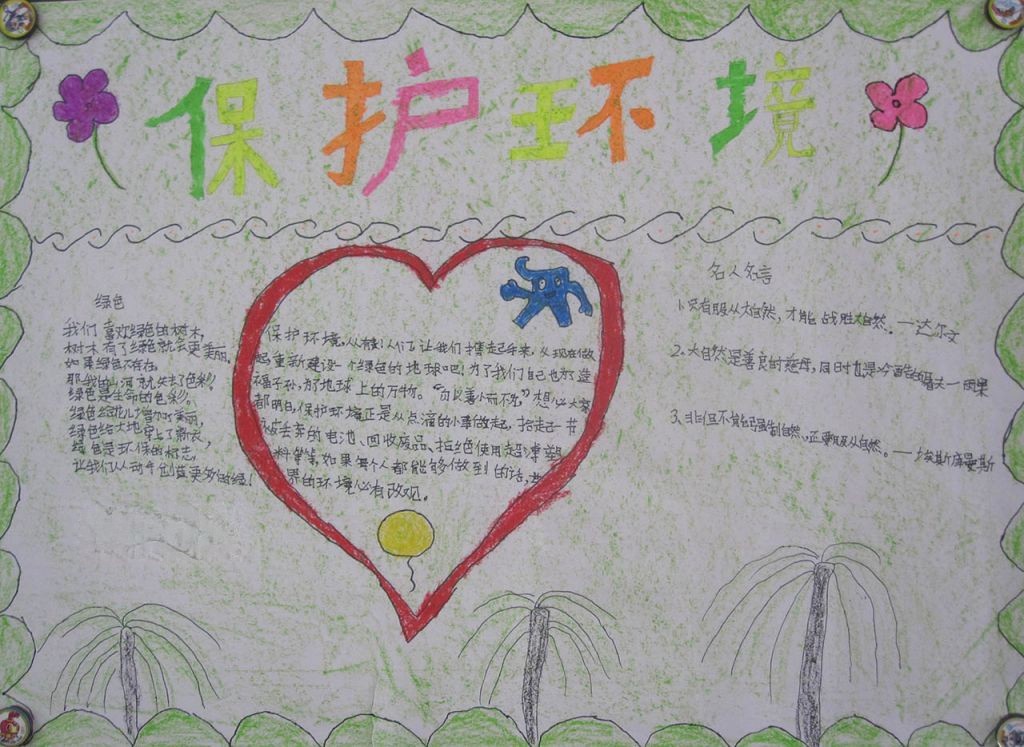 保护环境
绿色
我们喜欢绿色的树木,
树木有了绿色就会更美丽。
如果绿色不存在,
那我的山河就失去了色彩,
绿色是生命的色彩。
绿色给花儿增加了美丽,
绿色给大地穿上了新衣,
绿色是环保的标志,
让我们从动手创造更多的绿!
保护环境,从有我!人人让我们携起手来,从现在做
起重新建设一个绿色的地球吧!为了我们自己也为了造
福子孙,为了地球上的万物。“勿以善小而不为”想必大家
都明白,保护环境正是从点滴的小事做起,拾起一节
被丢弃的电池、回收废品、拒绝使用超薄塑
料等等,如果每个人都能够做到的话,世
界的环境必有改观。
名人名言
1、只有服从大自然,才能战胜大自然。——达尔文
2、大自然是善良的慈母,同时也是冷酷的屠夫——雨果
3、非但不能强制自然,还要服从自然。——埃斯库曼斯